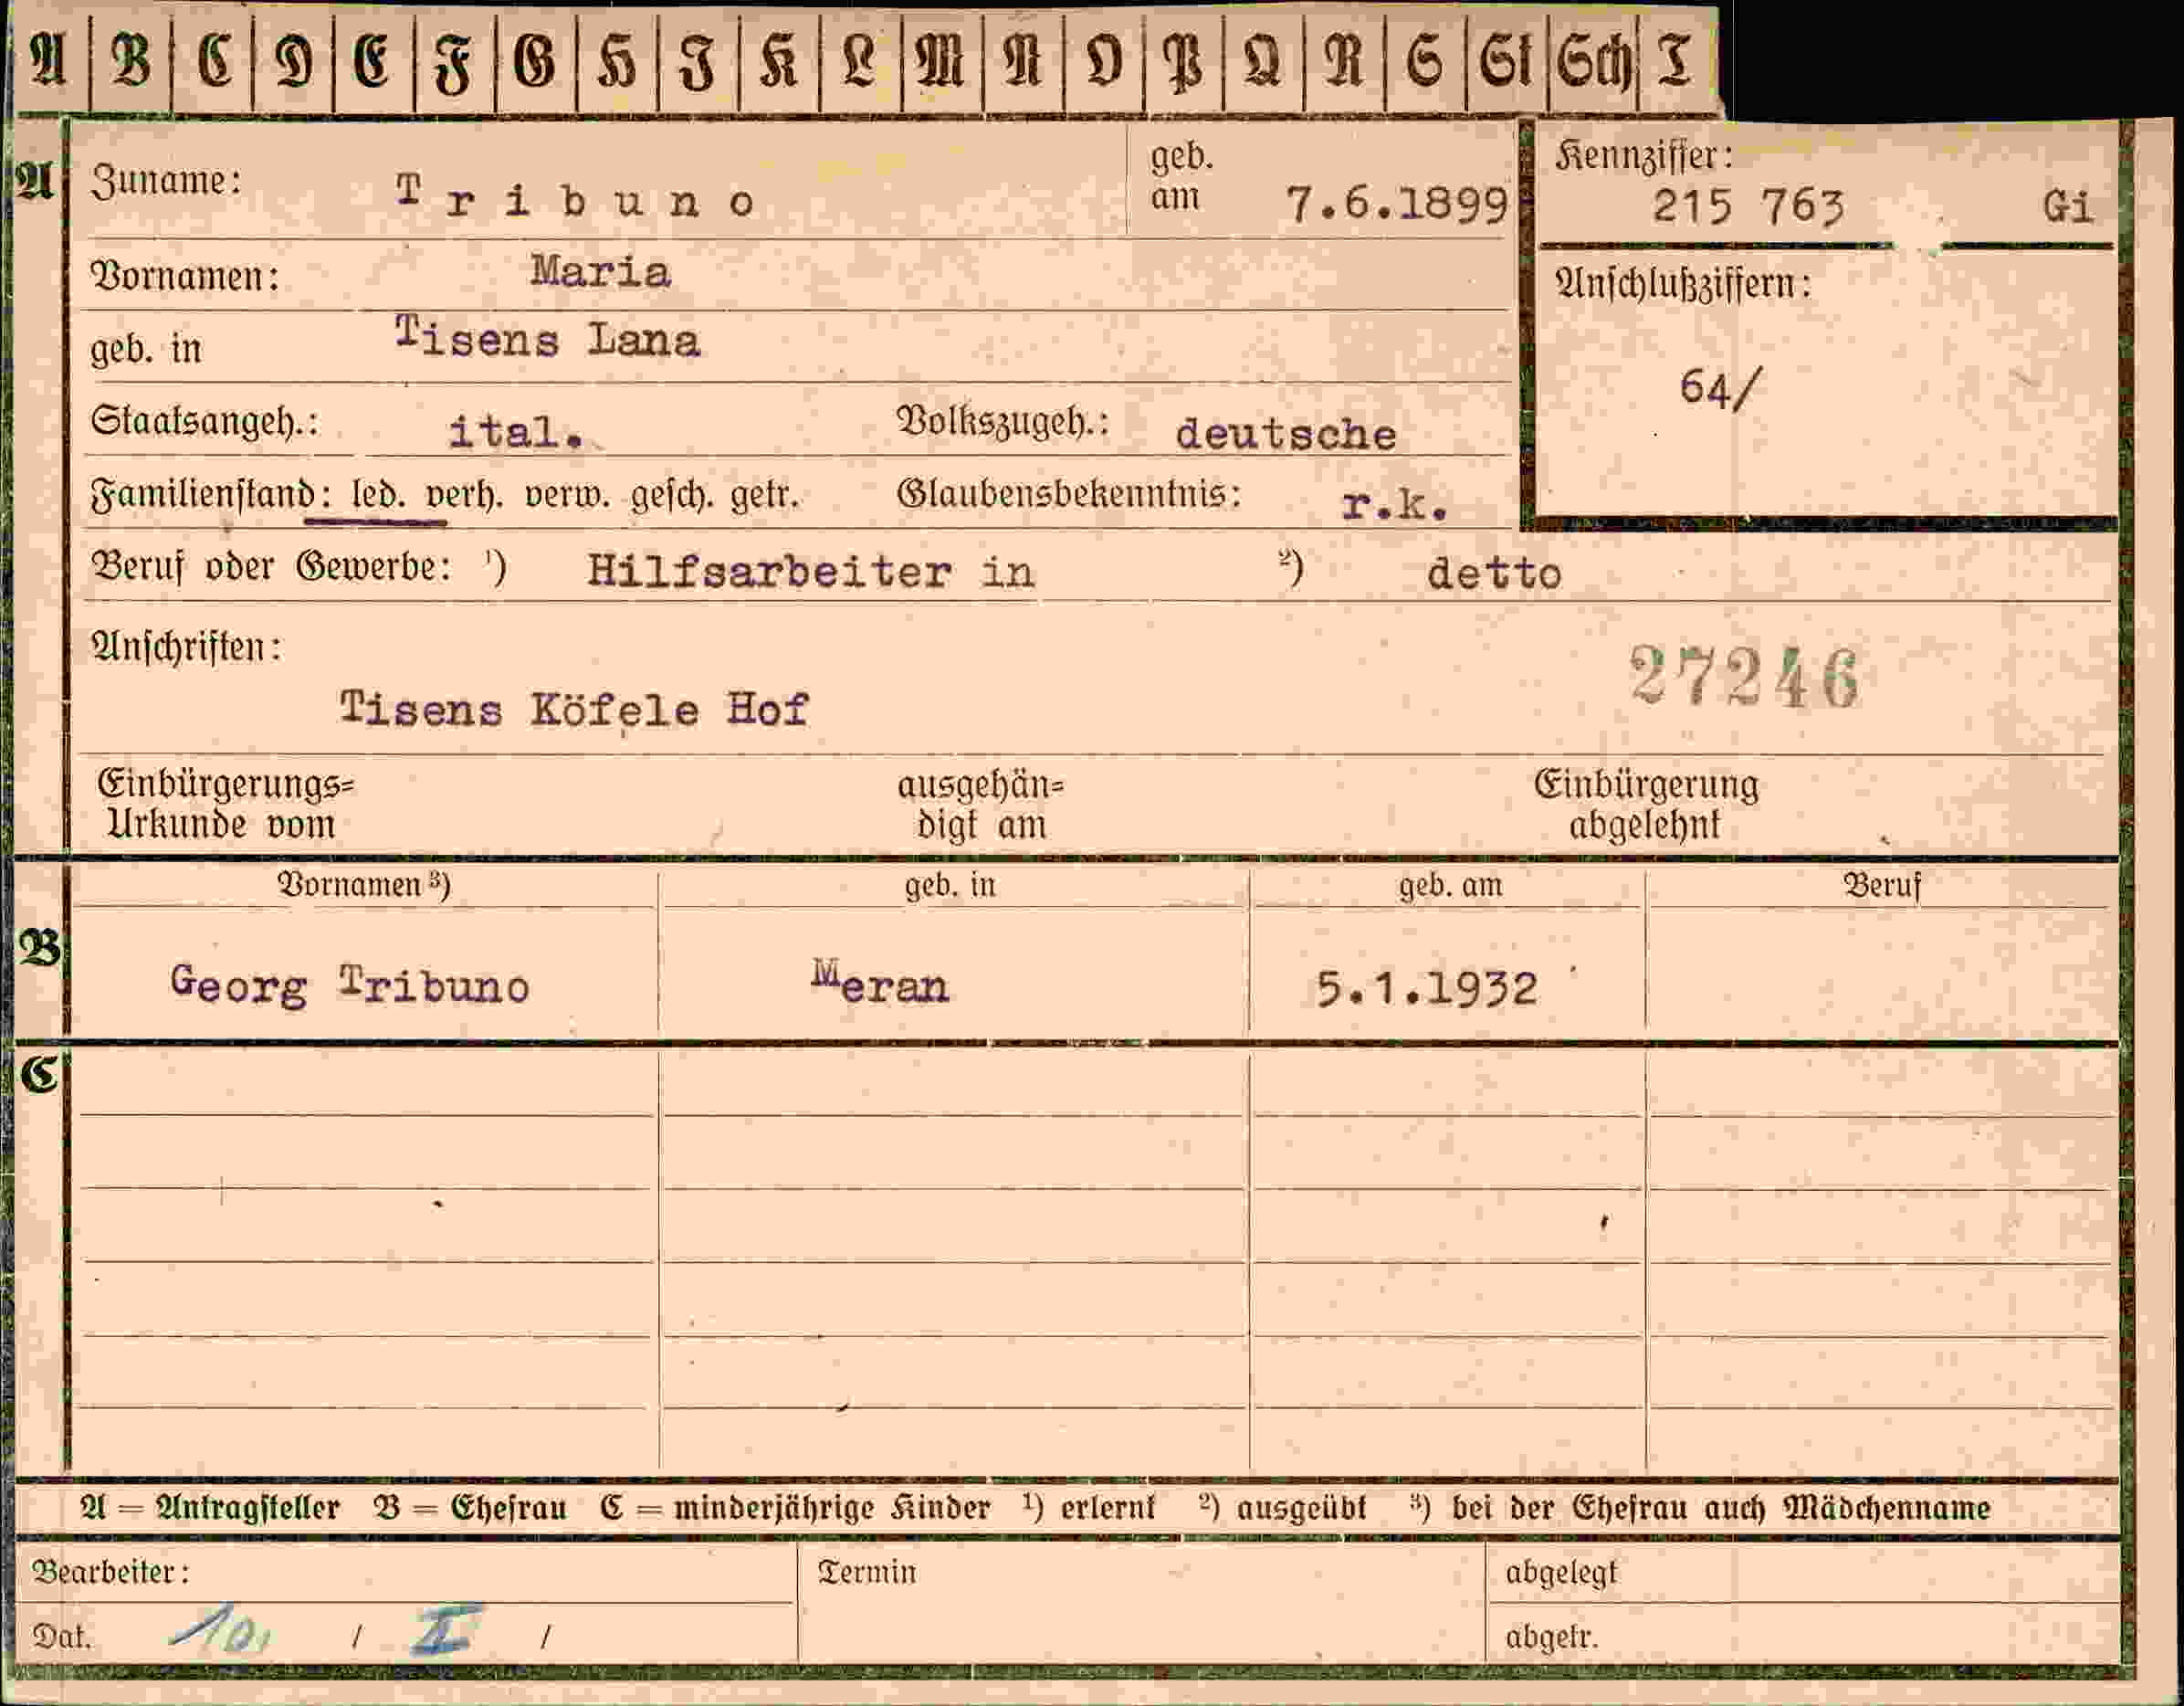 A B C D E F G H I K L M N O P Q R S St Sch T
A Zuname: Tribuno geb. am 7.6.1899 Kennziffer: 215 763 Gi
Vornamen: Maria Anschlußziffern:
geb. in Tisens Lana
64/
Staatsangeh.: ital. Volkszugeh.: deutsche
Familienstand: led. verh. verw. gesch. getr. Glaubensbekenntnis: r.k.
Beruf oder Gewerbe: ¹) Hilfsarbeiter in ²) detto
Anschriften: 27246
Tisens Köfele Hof
Einbürgerungs= ausgehän= Einbürgerung
Urkunde vom digt am abgelehnt
Vornamen ³) geb. in geb. am Beruf
B
Georg Tribuno Meran 5.1.1932
C
A = Antragsteller B = Ehefrau C = minderjährige Kinder ¹) erlernt ²) ausgeübt ³) bei der Ehefrau auch Mädchenname
Bearbeiter: Termin abgelegt
Dat. 10. / II / abgetr.